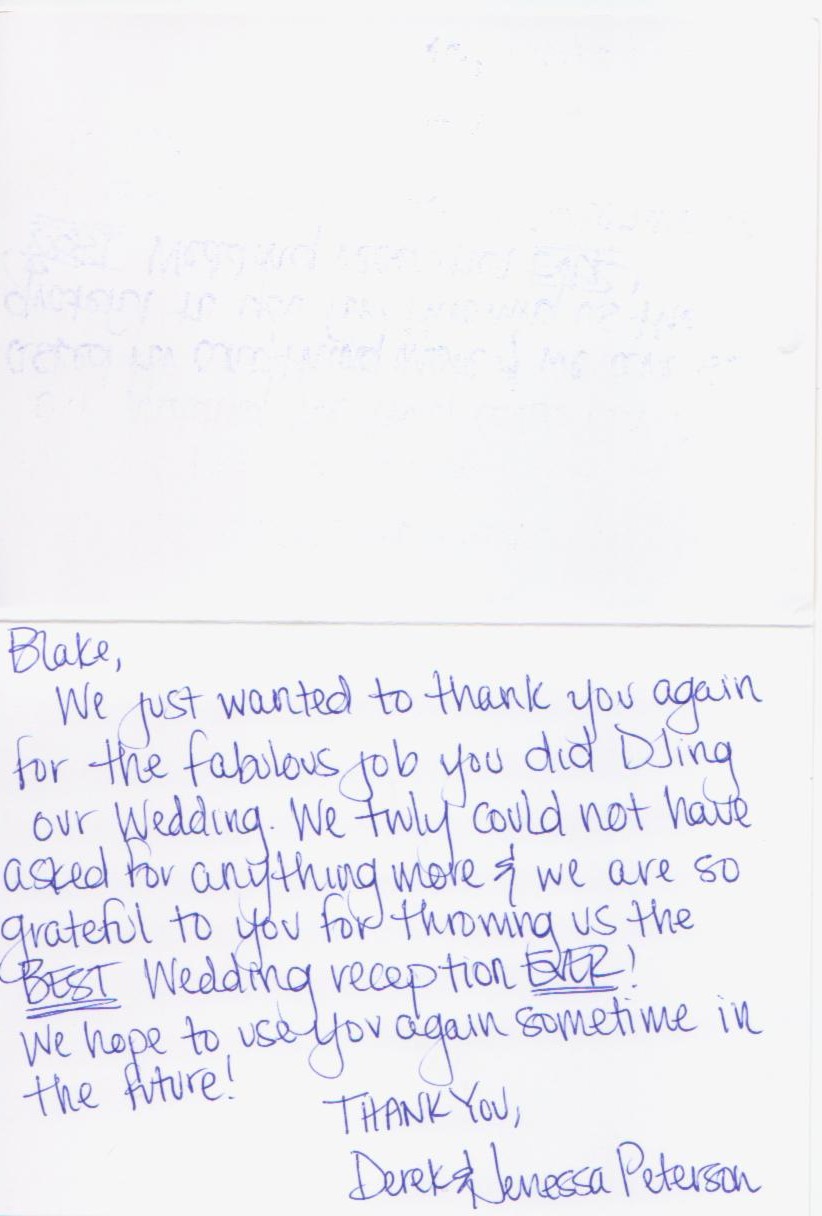 Blake,
We just wanted to thank you again
for the fabulous job you did DJing
our Wedding. We truly could not have
asked for anything more & we are so
grateful to you for throwing us the
BEST Wedding reception EVER!
We hope to use you again sometime in
the future!
THANK YOU,
Derek & Jenessa Peterson